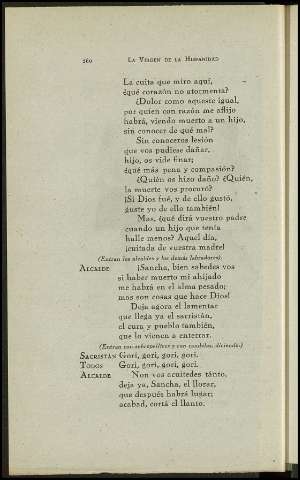 260 LA VIRGEN DE LA HISPANIDAD
La cuita que miro aquí,
¿qué corazón no atormenta?
¿Dolor como aqueste igual,
por quien con razón me aflijo
habrá, viendo muerto a un hijo,
sin conocer de qué mal?
Sin conoceros lesión
que vos pudiese dañar,
hijo, os vide finar;
¿qué más pena y compasión?
¿Quién os hizo daño? ¿Quién,
la muerte vos procuró?
¡Si Dios fué, y de ello gustó,
guste yo de ello también!
Mas, ¿qué dirá vuestro padre
cuando un hijo que tenía
halle menos? Aquel día,
¡cuitada de vuestra madre!
(Entran los alcaldes y los demás labradores).
ALCALDE ¡Sancha, bien sabedes vos
si haber muerto mi ahijado
me habrá en el alma pesado;
mas son cosas que hace Dios!
Deja agora el lamentar
que llega ya el sacristán,
el cura y pueblo también,
que lo vienen a enterrar.
(Entran con sobrepellices y con candelas, diciendo:)
SACRISTÁN Gori, gori, gori, gori.
TODOS Gori, gori, gori, gori.
ALCALDE Non vos acuitedes tánto,
deja ya, Sancha, el llorar,
que después habrá lugar;
acabad, cortá el llanto.